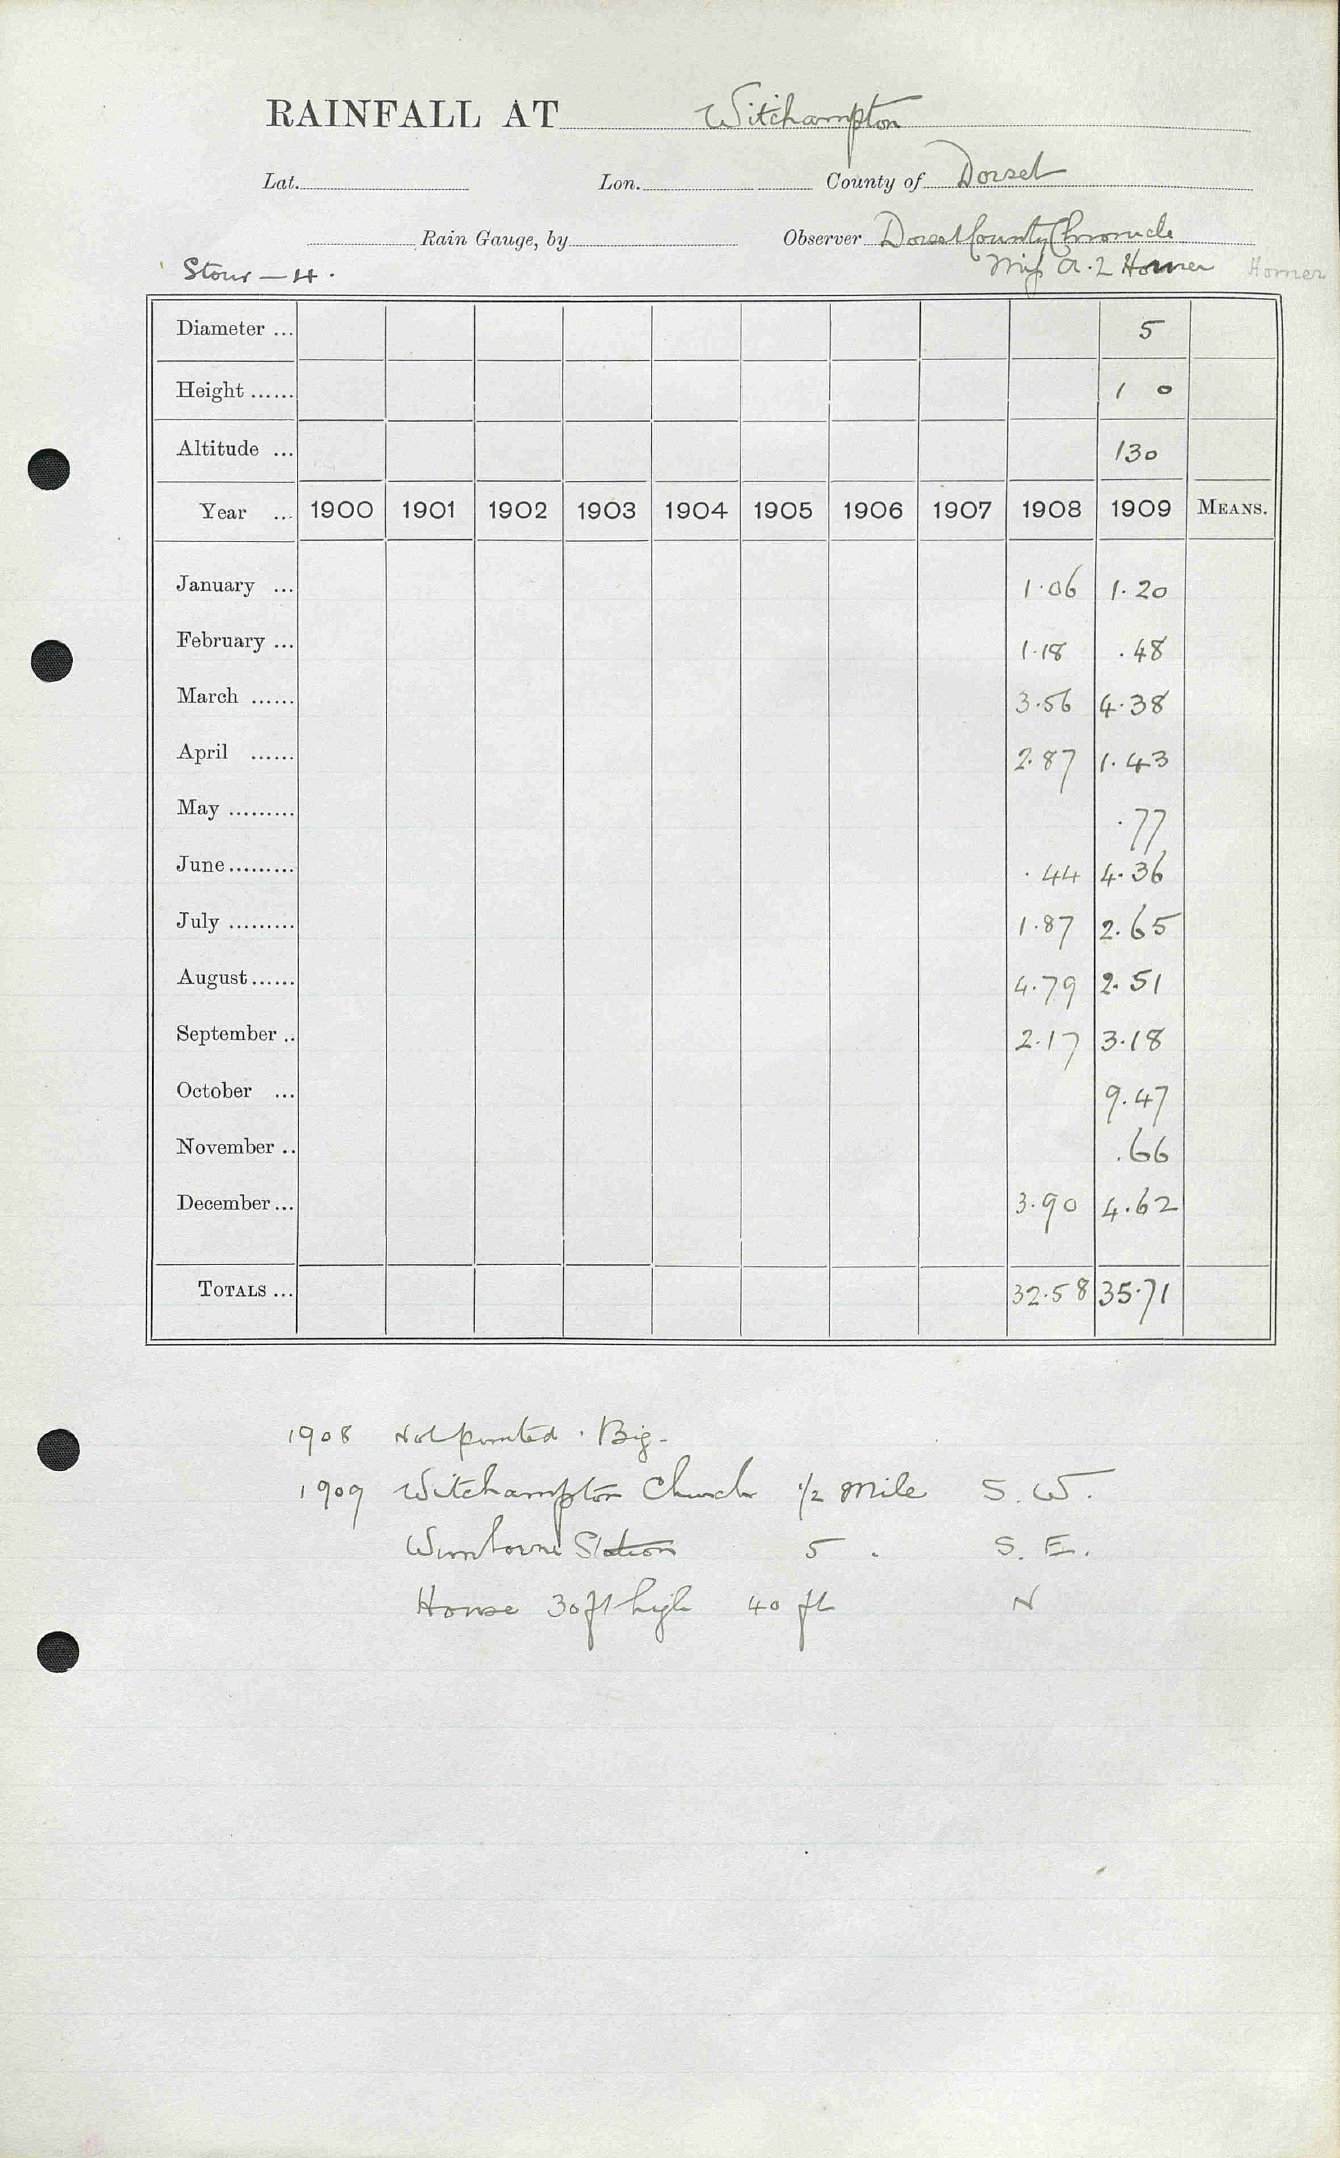 RAINFALL AT Witchampton
Lat. Lon. County of Dorset
Rain Gauge, by Observer Dorset County Chronicle
Stour – 4. Miss A. L Horner Horner
Diameter ... 5
Height ...... 1 0
Altitude ... 130
Year ... 1900 1901 1902 1903 1904 1905 1906 1907 1908 1909 MEANS.
January ... 1.06 1.20
February ... 1.18 .48
March ...... 3.56 4.38
April ...... 2.87 1.43
May ......... .77
June ......... .44 4.36
July ......... 1.87 2.65
August ...... 4.79 2.51
September .. 2.17 3.18
October ... 9.47
November .. .66
December ... 3.90 4.62
TOTALS ... 32.58 35.71
1908 Not printed. Big.
1909 Witchampton Church 1/2 mile S. W.
Wimborne Station 5 . S. E.
House 30 ft high 40 ft N